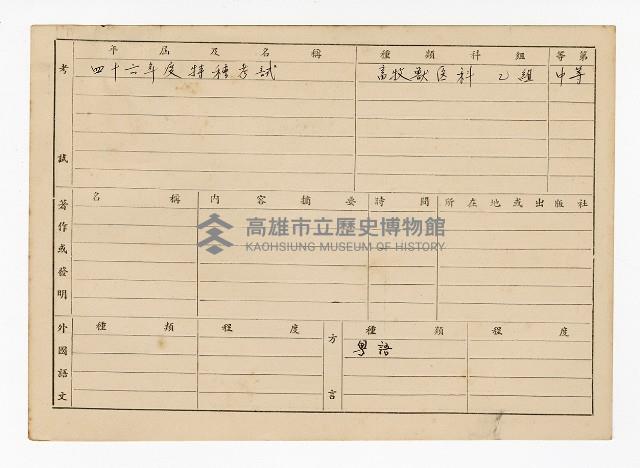 考試
年屆及名稱 種類科組 等第
四十六年度特種考試 畜牧獸医科 乙組 中等
著作或發明
名稱 內容摘要 時間 所在地或出版社
高雄市立歷史博物館
KAOHSIUNG MUSEUM OF HISTORY
外國語文
種類 程度
方言
種類 程度
粵語